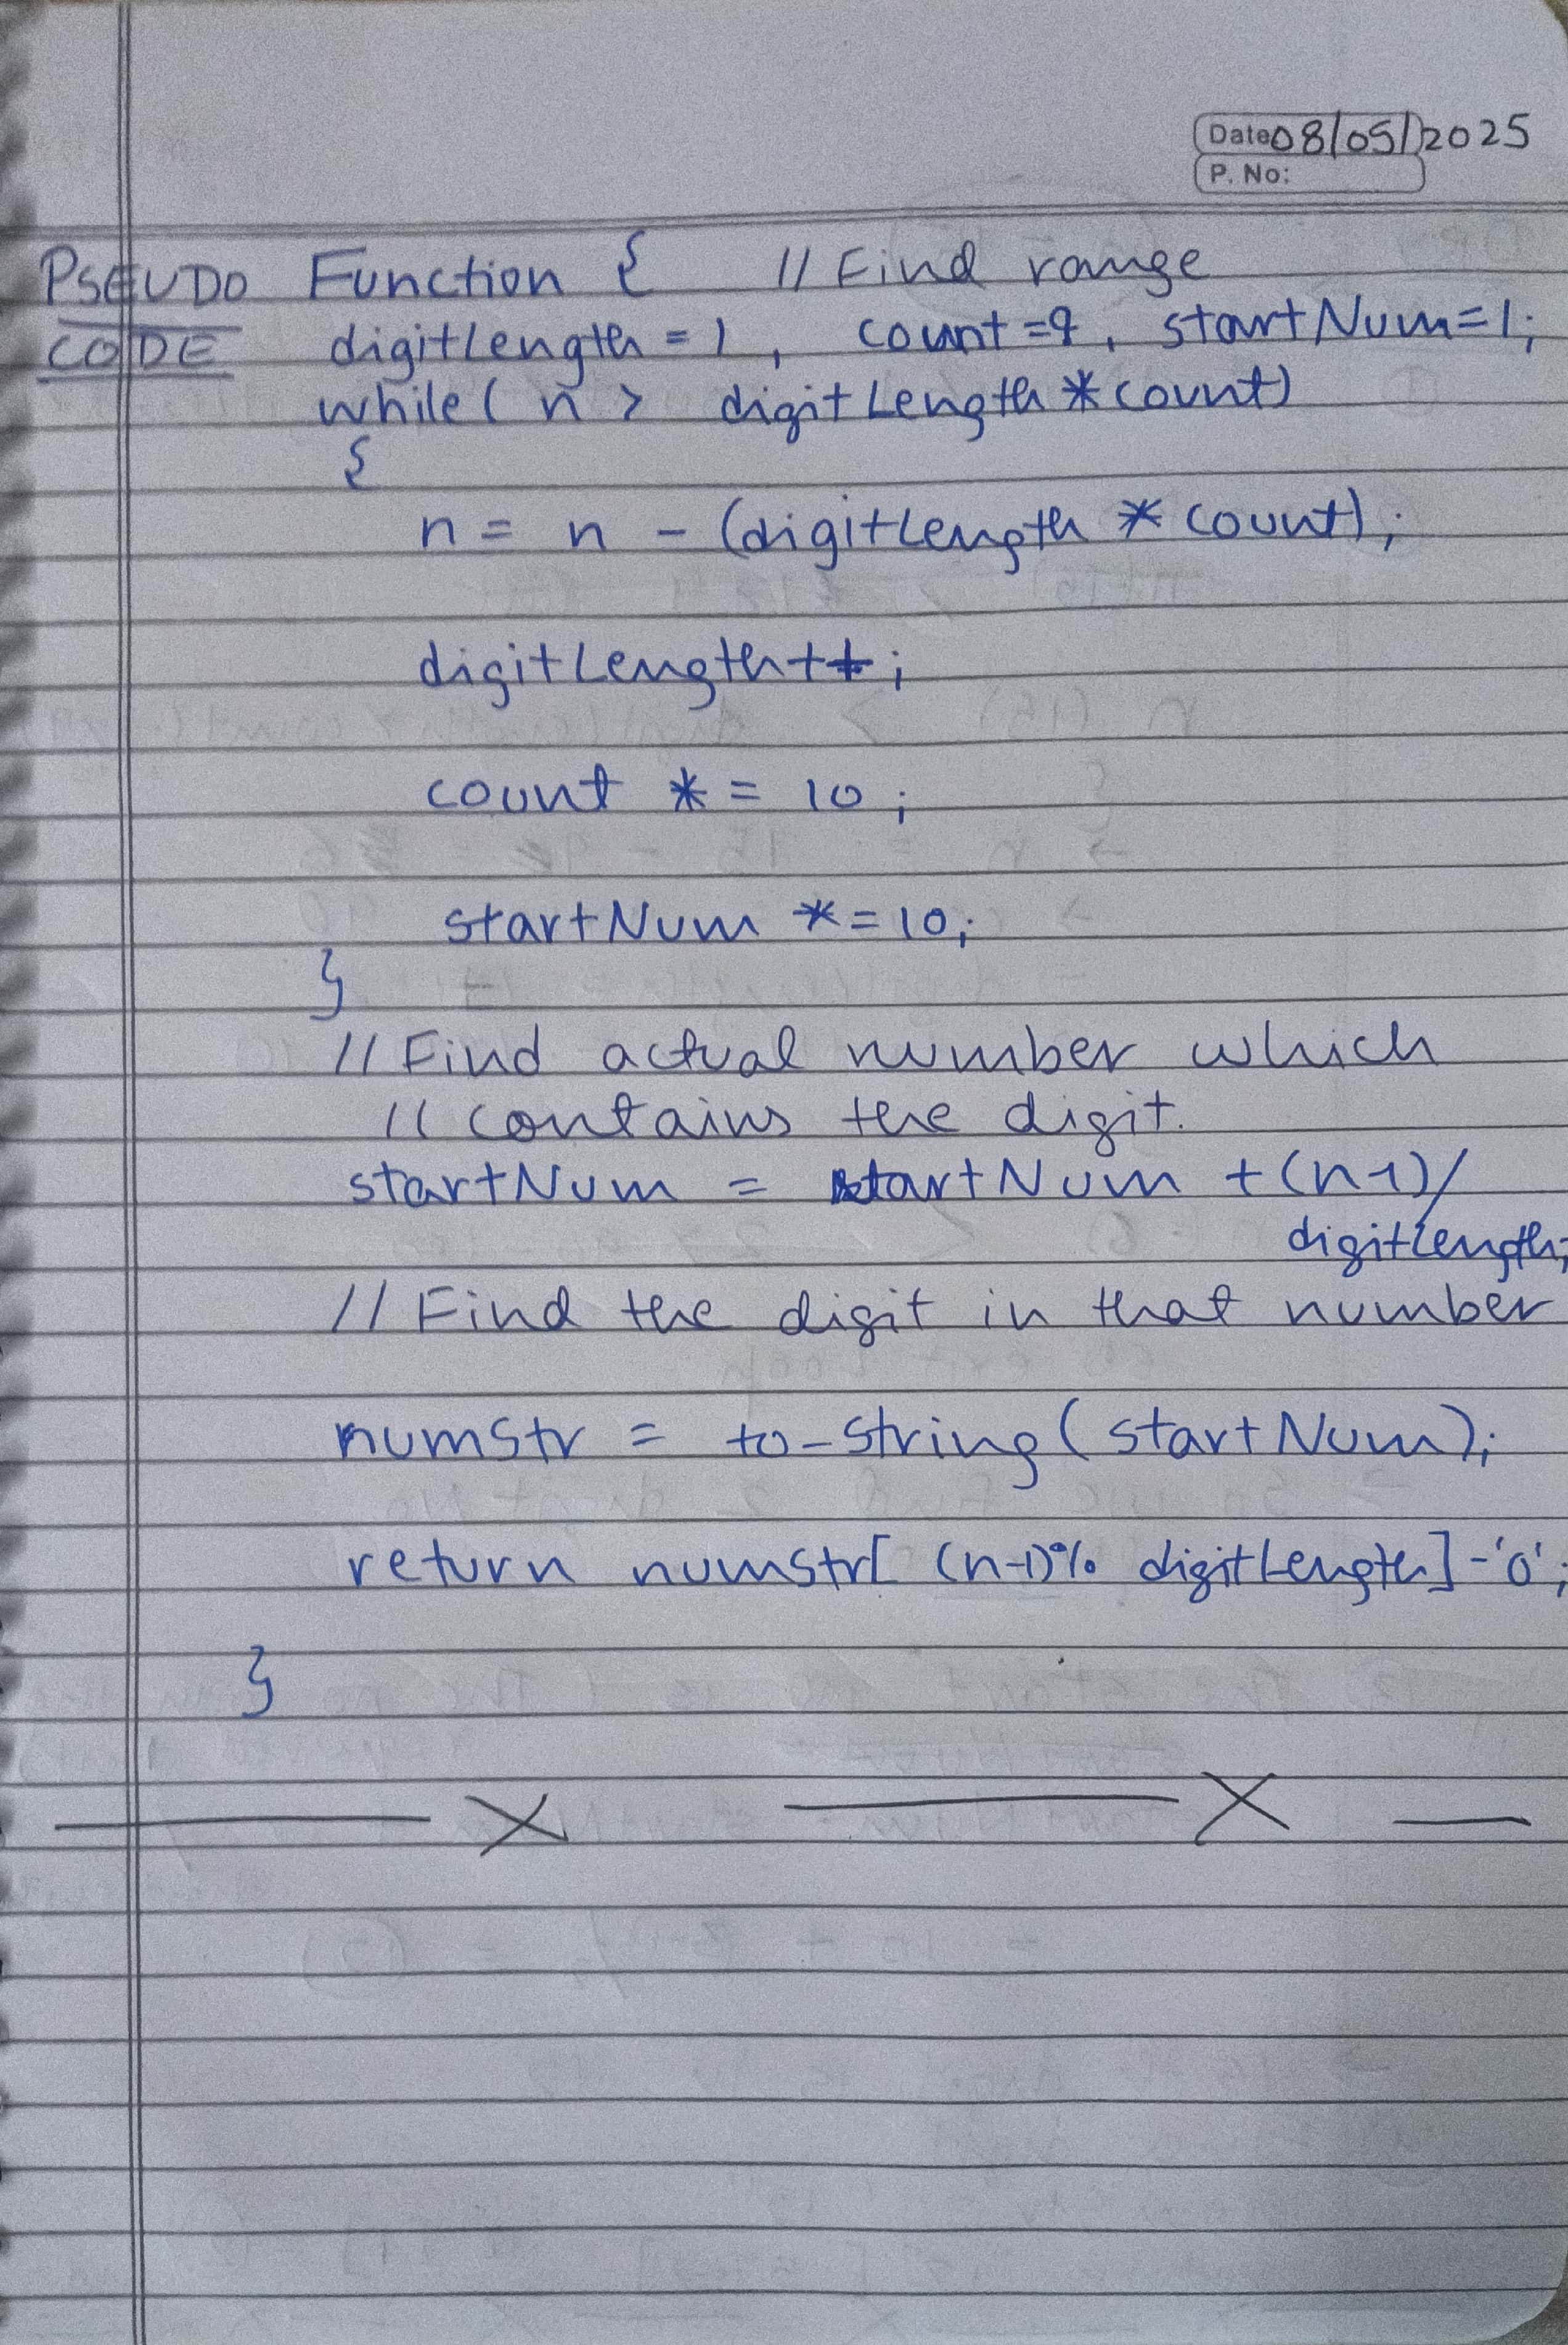 Date 08/05/2025
P. No:
PSEUDO Function { // Find range
CODE digitLength = 1, count = 9, startNum = 1;
while ( n > digitLength * count)
{
n = n - (digitLength * count);
digitLength++;
count *= 10;
startNum *= 10;
}
// Find actual number which
// contains the digit.
startNum = startNum + (n-1)/
digitLength;
// Find the digit in that number
numstr = to-string(startNum);
return numstr[ (n-1)% digitLength] - '0';
}